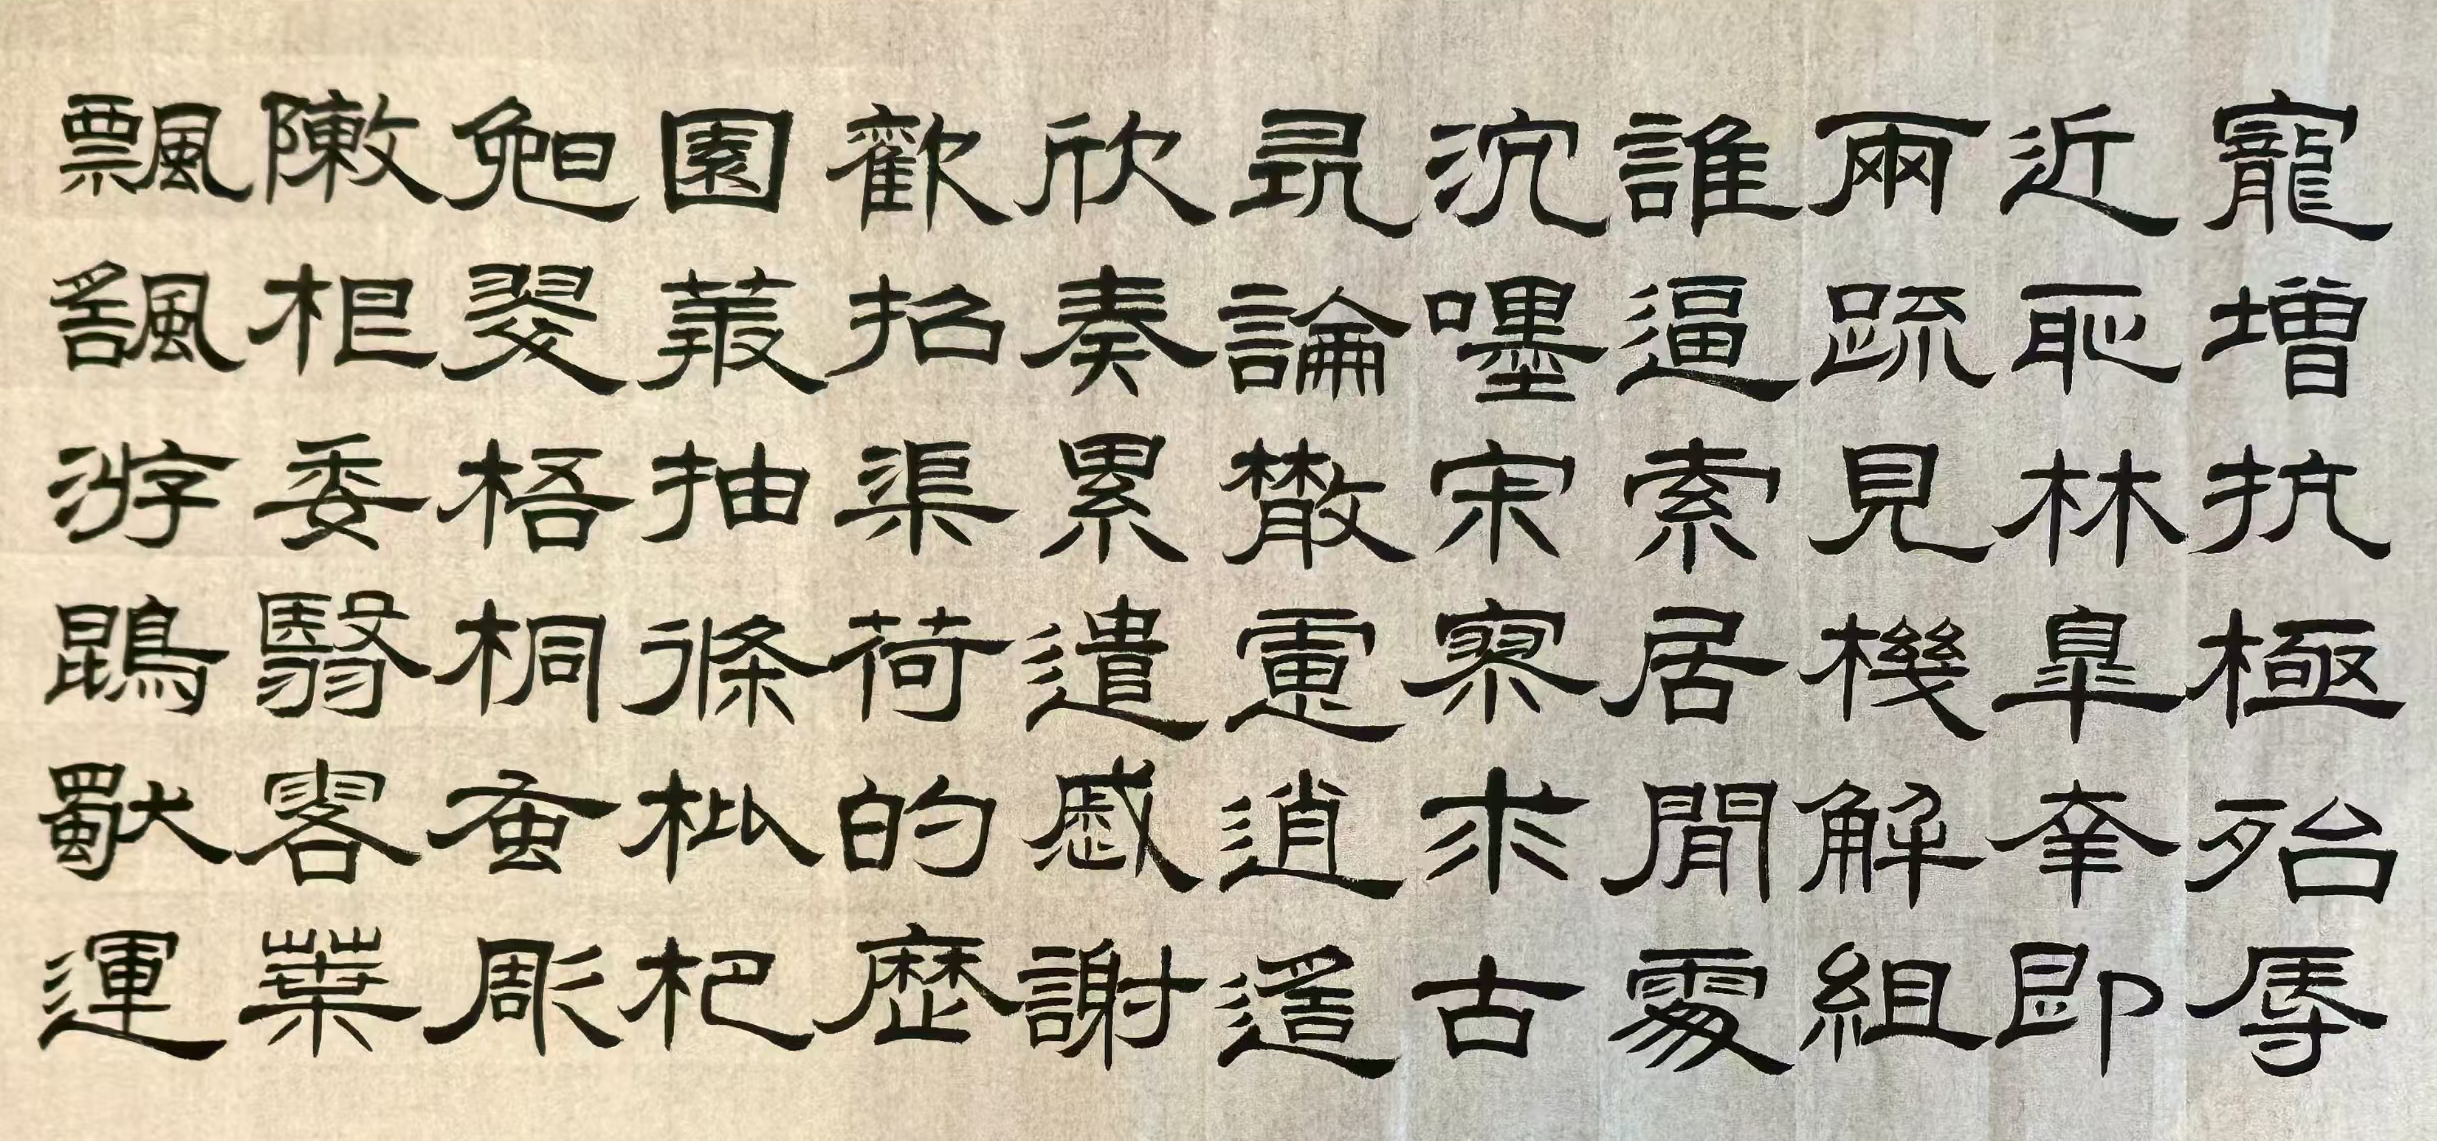 寵增抗極殆辱
近恥林皋幸即
兩疏見機解組
誰逼索居閒處
沉嘿寂寥求古
尋論散慮逍遙
欣奏累遣慼謝
歡招渠荷的歷
園叢抽條枇杷
晚翠梧桐蚤彫
陳根委翳落葉
飄颻游鵾獨運